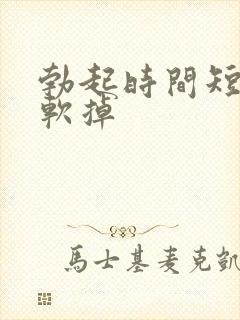 勃起時間短
軟掉
馬士基麥克凱